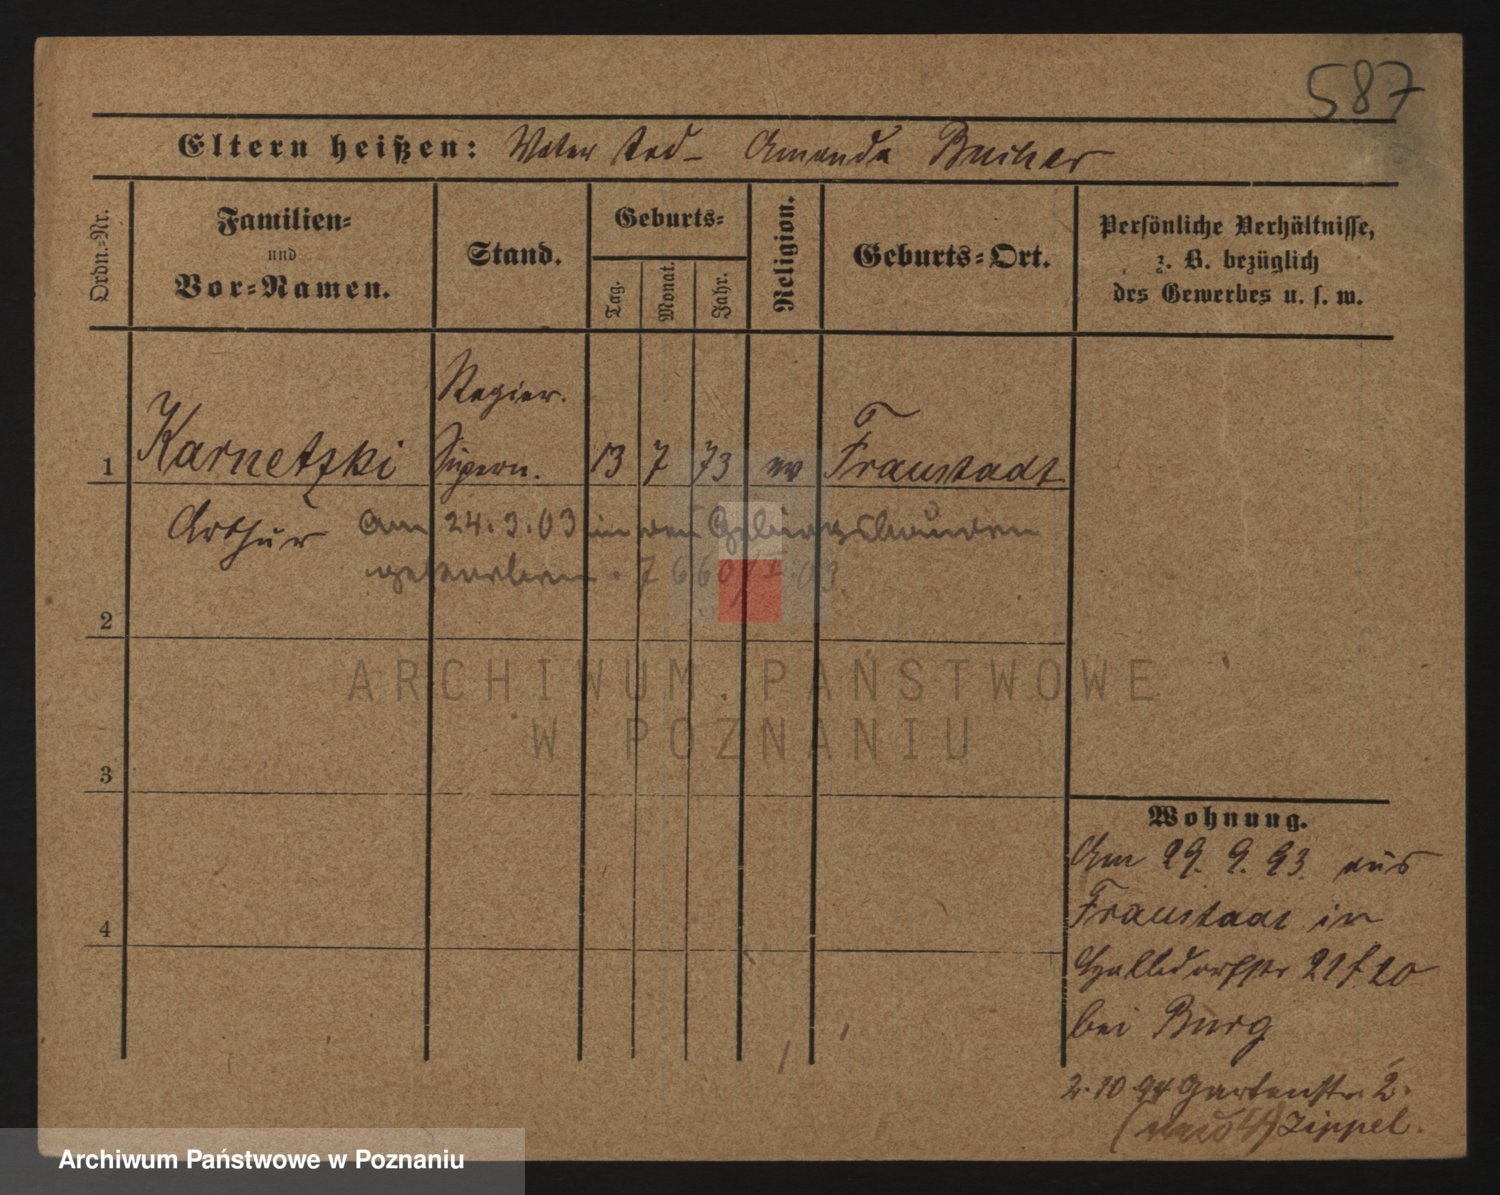 587
Eltern heißen: Vater tod – Amanda
Ordn.-Nr.
Familien-
und
Vor-Namen.
Stand.
Geburts-
Tag.
Monat.
Jahr.
Religion.
Geburts-Ort.
Persönliche Verhältnisse,
z. B. bezüglich
des Gewerbes u. s. w.
Regier.
1 Karnetzki Supern. 13 7 73 ev Fraustadt
Arthur Am 24.3.03 in
gestorben.
2
ARCHIWUM PAŃSTWOWE
W POZNANIU
3
Wohnung.
Am 29. 9. 93. aus
Fraustadt in
4
Halbdorfstr 21 f 20
bei Burg
2.10.94 Gartenstr. 2.
Zippel.
Archiwum Państwowe w Poznaniu